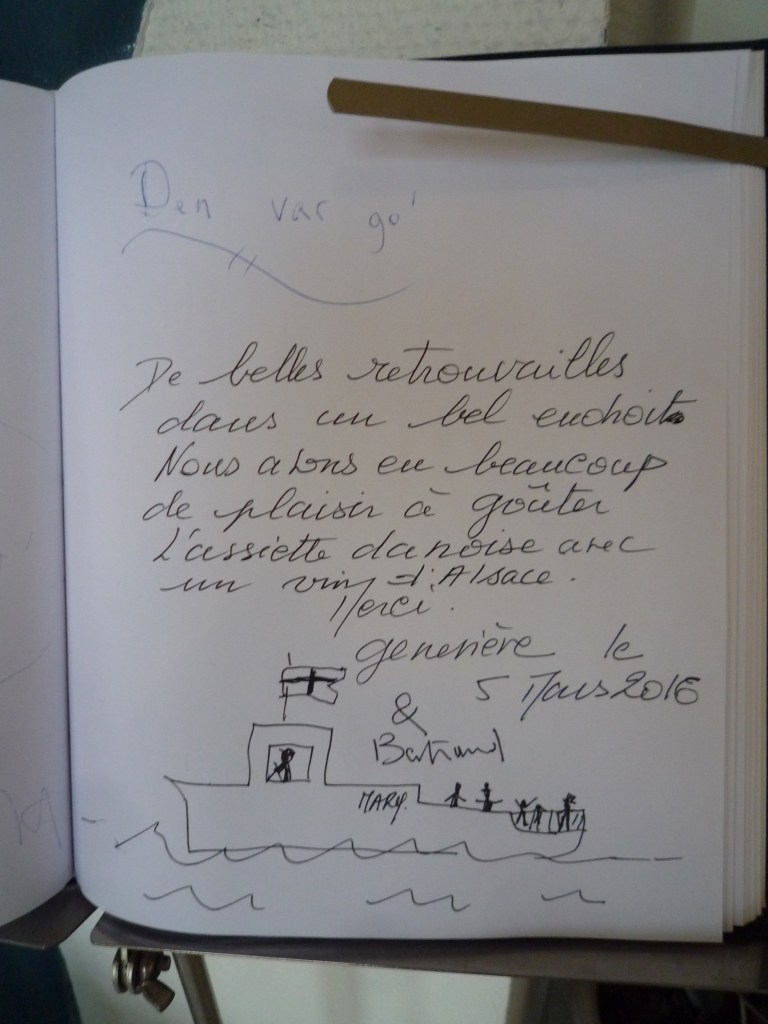 Den var go'
De belles retrouvailles
dans un bel endroit
Nous avons eu beaucoup
de plaisir à goûter
l'assiette danoise avec
un vin d'Alsace.
Merci.
geneviève le
5 Mars 2016
&
Bertrand
MARY.